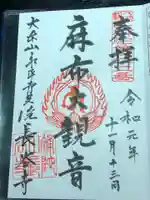 奉拝
令和元年
十一月十三日
麻布大観音
大本山永平寺別院長谷寺